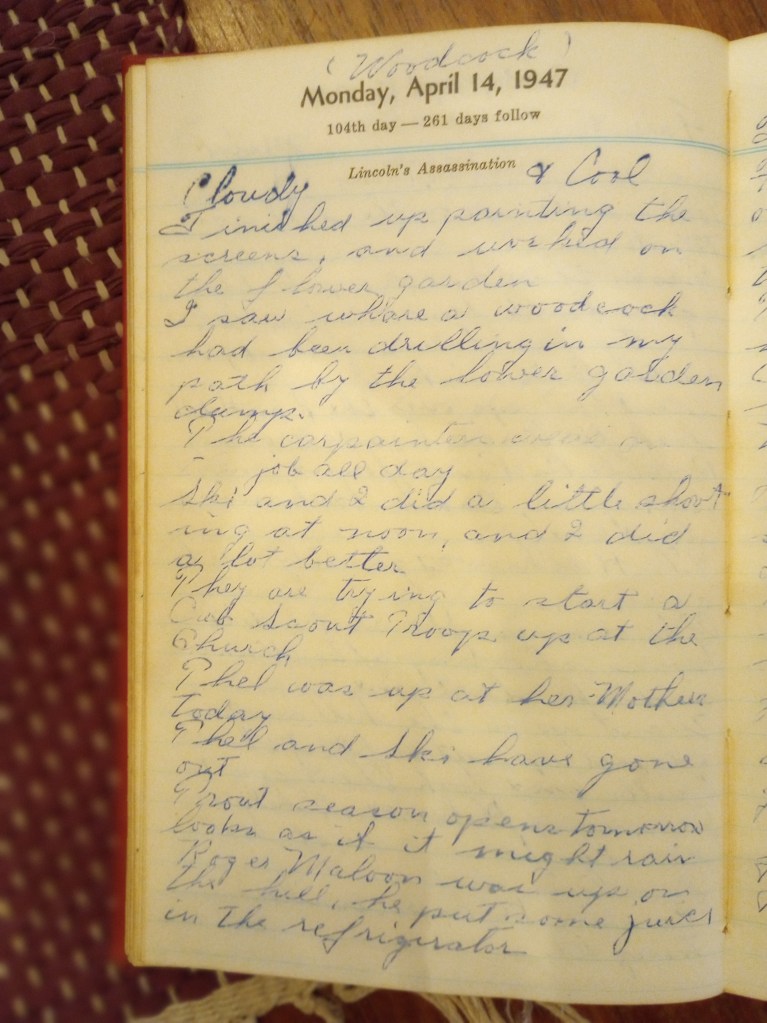 (Woodcock)
Monday, April 14, 1947
104th day — 261 days follow
Lincoln's Assassination
Cloudy & Cool
Finished up painting the
screens, and worked on
the flower garden
I saw whare a woodcock
had been drilling in my
path by the lower garden
dump.
The carpainter on
job all day
Ski and I did a little shoot
ing at noon, and I did
a lot better
They are trying to start a
Cub Scout Troop up at the
Church
Thel was up at her Mothers
today
Thel and Ski have gone
out
Trout season opens tomorrow
looks as if it might rain
Roger Maloon was up on
the hill, he put some juices
in the refrigirator